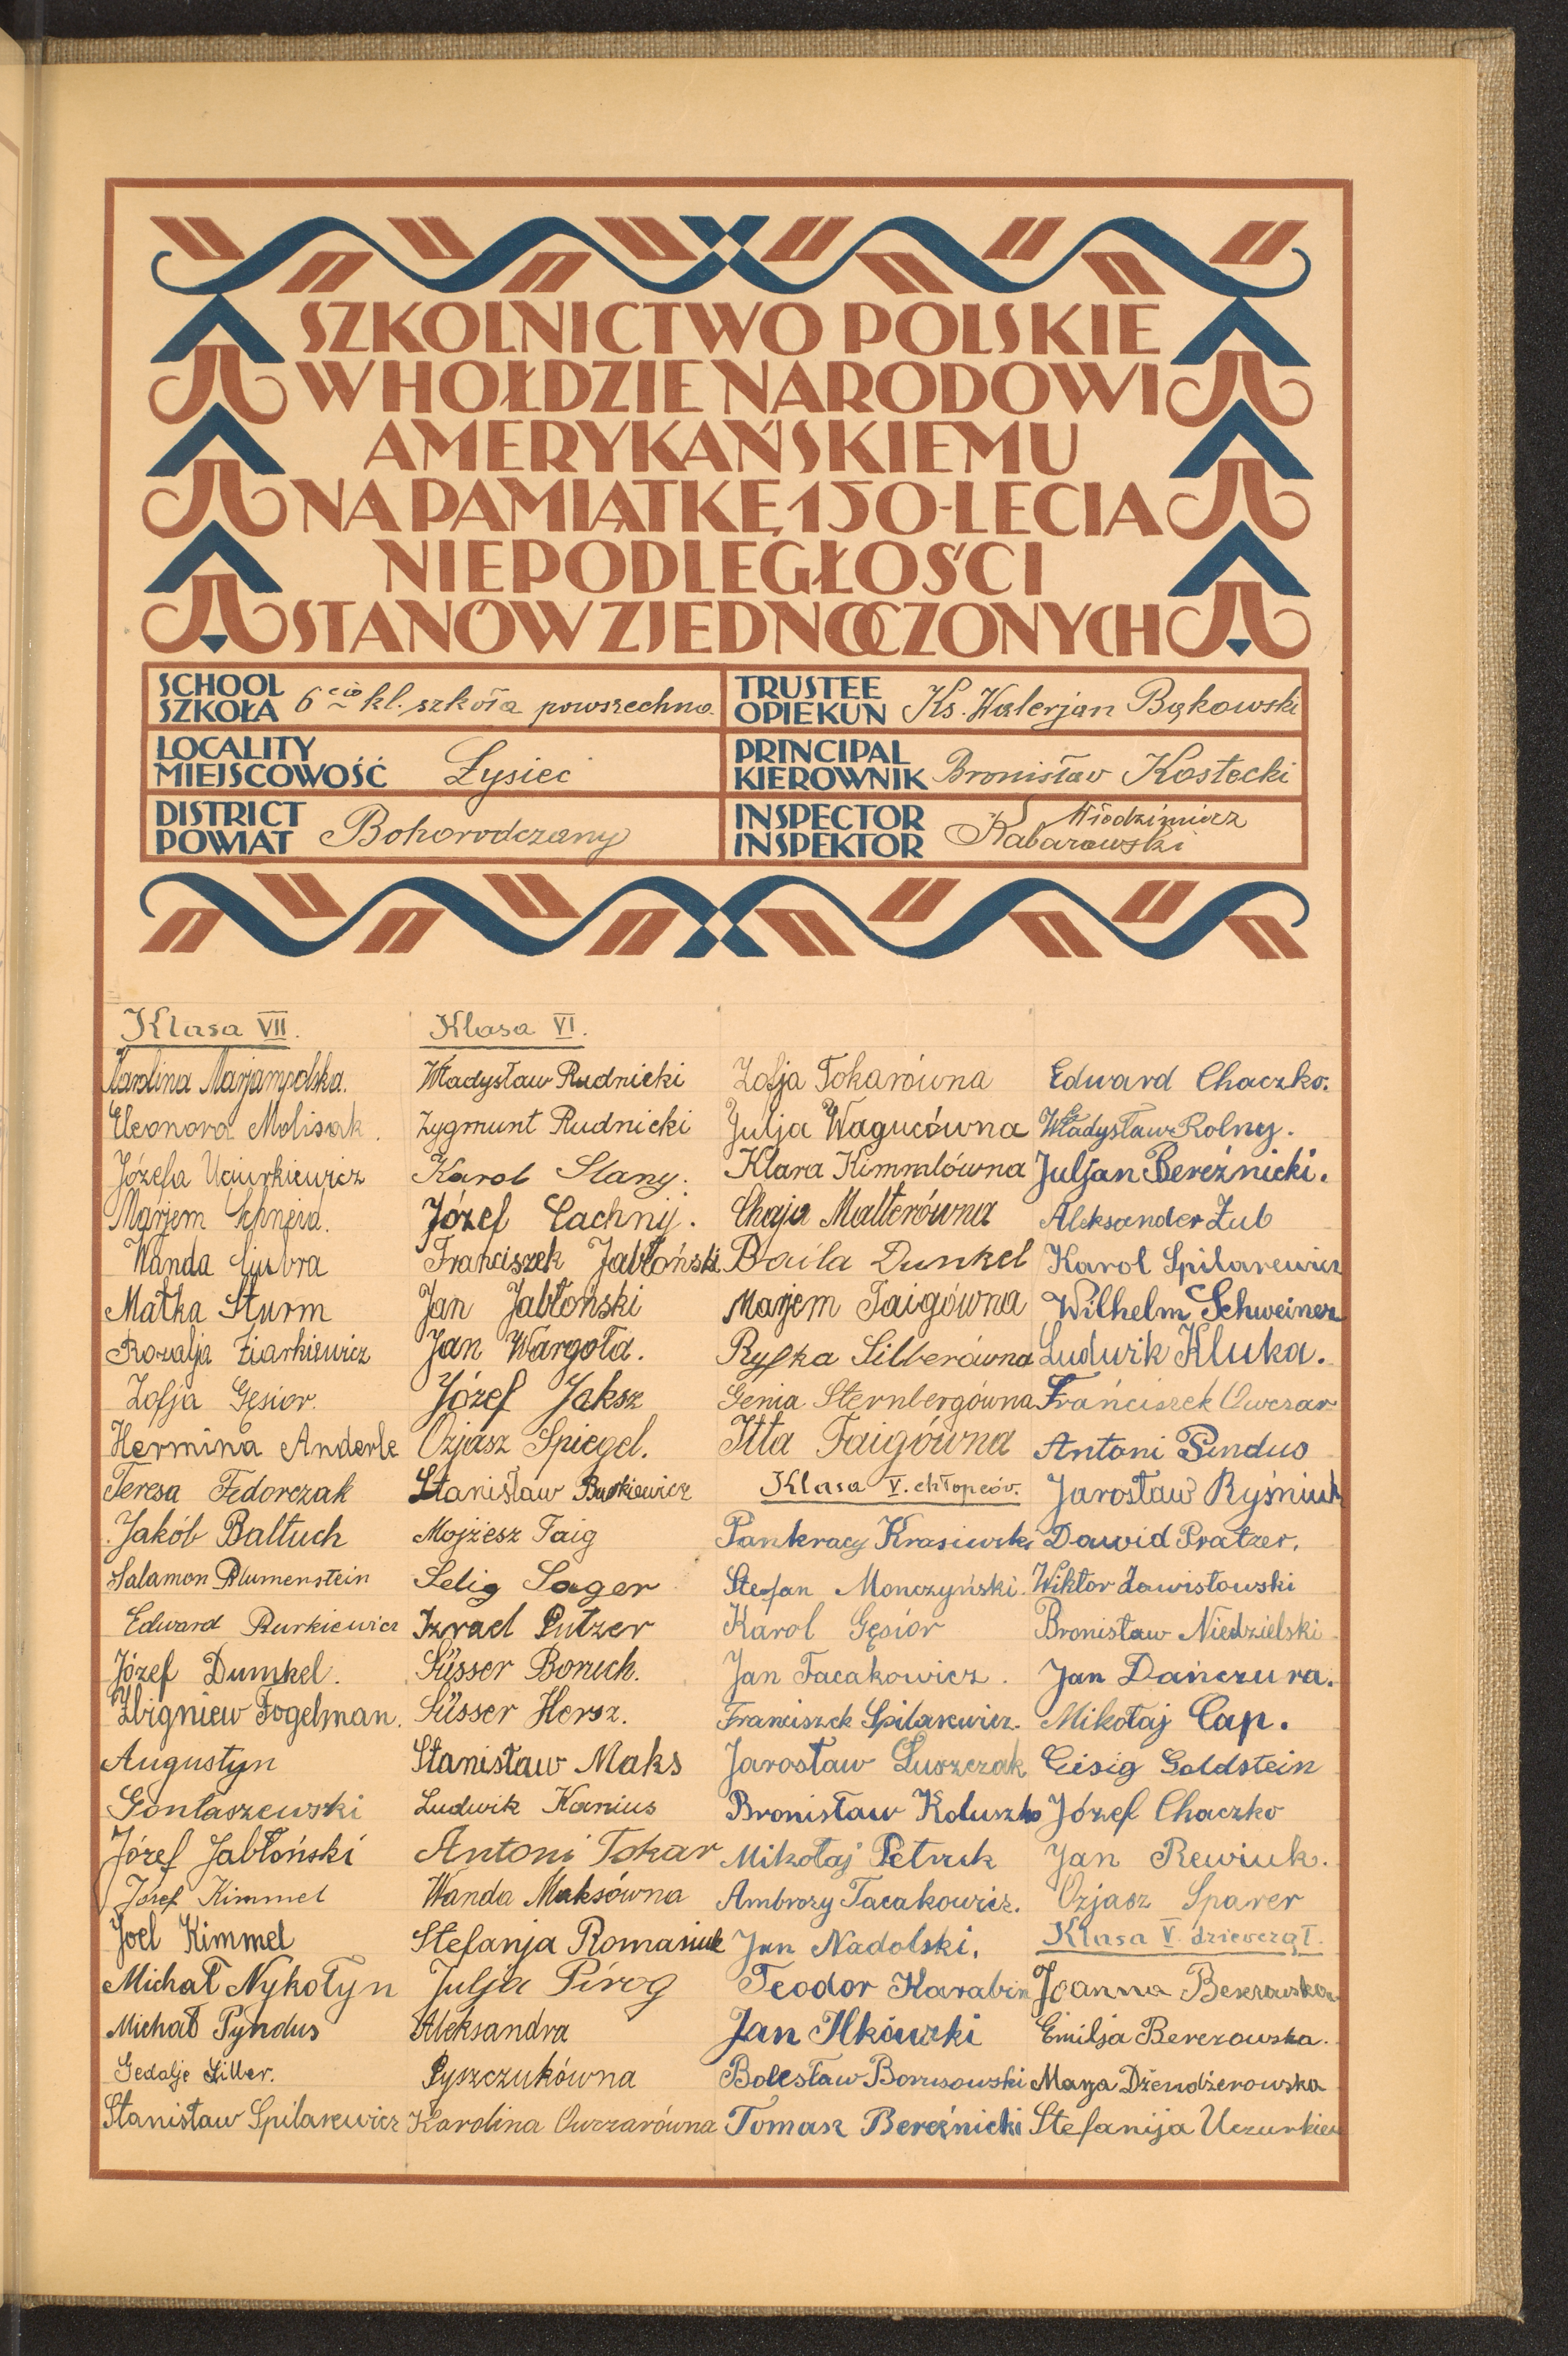 SZKOLNICTWO POLSKIE
W HOŁDZIE NARODOWI
AMERYKAŃSKIEMU
NA PAMIĄTKĘ 150-LECIA
NIEPODLEGŁOŚCI
STANÓW ZJEDNOCZONYCH
SCHOOL
SZKOŁA
6cio kl. szkoła powszechna
TRUSTEE
OPIEKUN
Ks. Walerjan Bąkowski
LOCALITY
MIEJSCOWOŚĆ
Łysiec
PRINCIPAL
KIEROWNIK
Bronisław Kostecki
DISTRICT
POWIAT
Bohorodczany
INSPECTOR
INSPEKTOR
Włodzimierz
Kabarowski
Klasa VII.
Karolina Marjampolska.
Eleonora Molisak.
Józefa Uciurkiewicz
Marjem Schneid.
Wanda
Małka Sturm
Rozalja Ziarkiewicz
Zofja Gęsior.
Hermina Anderle
Teresa Fedorczak
Jakób Baltuch
Salamon Blumenstein
Edward Burkiewicz
Józef Dumkel.
Zbigniew Fogelman.
Augustyn
Gontaszewski
Józef Jabłoński
Józef Kimmel
Joel Kimmel
Michał Nykołyn
Michał Pyndus
Gedalje Silber.
Stanisław Spilarewicz
Klasa VI.
Władysław Rudnicki
Zygmunt Rudnicki
Karol Slany.
Józef Cachnij.
Franciszek Jabłoński
Jan Jabłoński
Jan Wargoła.
Józef Jaksz
Ozjasz Spiegel.
Stanisław Burkiewicz
Mojżesz Taig
Selig Sager
Izrael Putzer
Süsser Boruch.
Süsser Hersz.
Stanisław Maks
Ludwik Kanius
Antoni Tokar
Wanda Maksówna
Stefanja Romaniuk
Julja Piróg
Aleksandra
Pyszczukówna
Karolina Owczarówna
Zofja Tokarówna
Julja Wagucówna
Klara Kimmlówna
Chaja Malterówna
Baila Dunkel
Marjem Taigówna
Ryfka Silberówna
Genia Sternbergówna
Itta Faigówna
Klasa V. chłopców.
Pankracy Krasiwski
Stefan Monczyński.
Karol Gęsior
Jan Tacakowicz.
Franciszek Spilarewicz.
Jarosław Łuszczak
Bronisław Koluszko
Mikołaj Petruk
Ambroży Tacakowicz.
Jan Nadolski.
Teodor Karabin
Jan Ilkówski
Bolesław Borusowski
Tomasz Bereźnicki
Edward Chaczko.
Władysław Rolny.
Juljan Bereźnicki.
Aleksander Żub
Karol Spilarewicz
Wilhelm Schweiner
Ludwik Kluka.
Frańciszek Owczar
Antoni Pindus
Jarosław Ryśniuk
Dawid Pratzer.
Wiktor Zawistowski
Bronisław Niedzielski
Jan Dańczura.
Mikołaj Cap.
Eisig Goldstein
Józef Chaczko
Jan Rewiuk.
Ozjasz Sparer
Klasa V. dziewcząt.
Joanna Berezowska
Emilja Berezowska.
Marja Dżendżerowska
Stefanija Uczurkiew